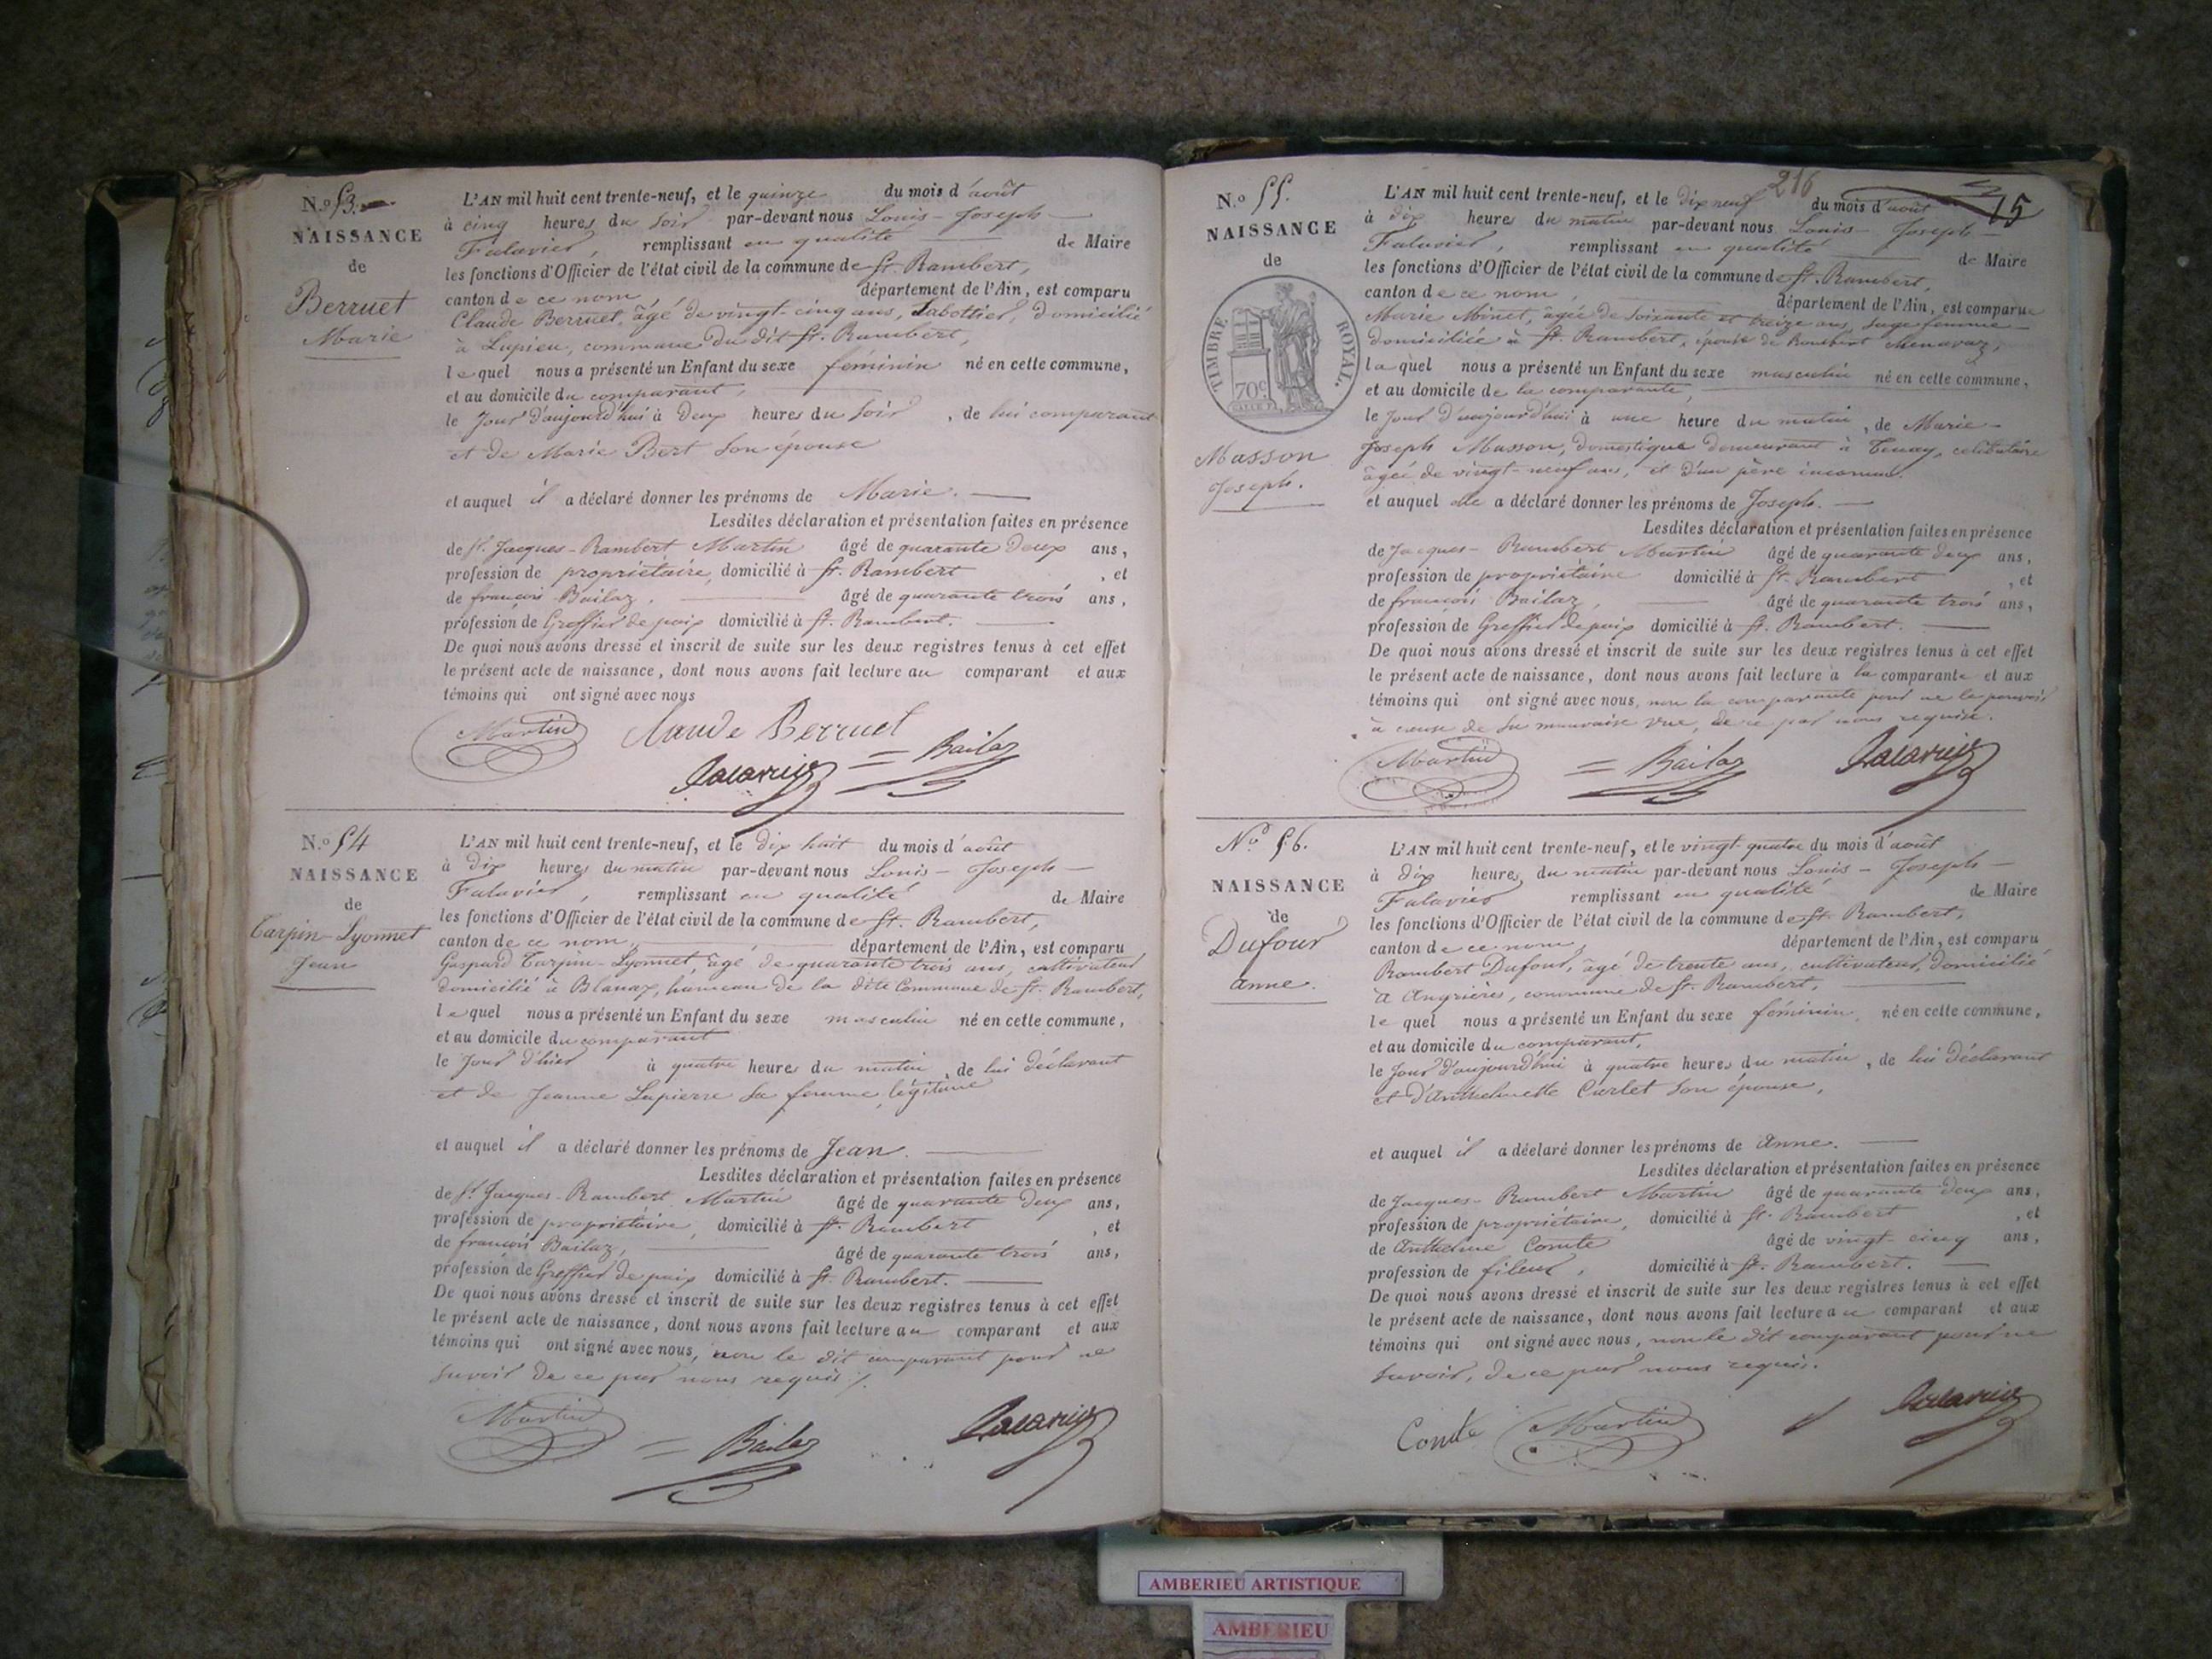 N.o 53.
NAISSANCE
de
Berruet
Marie
L'AN mil huit cent trente-neuf, et le quinze du mois d'août
à cinq heures du soir par-devant nous Louis-Joseph
Falavier, remplissant en qualité de Maire
les fonctions d'Officier de l'état civil de la commune de St. Rambert,
canton de ce nom, département de l'Ain, est comparu
Claude Berruet, âgé de vingt-cinq ans, Sabottier, domicilié
à Lupieu, commune du dit St. Rambert,
lequel nous a présenté un Enfant du sexe féminin né en cette commune,
et au domicile du comparant,
le jour d'aujourd'hui à deux heures du soir, de lui comparant
et de Marie Bert son épouse
et auquel il a déclaré donner les prénoms de Marie.
Lesdites déclaration et présentation faites en présence
de Sr. Jacques-Rambert Martin âgé de quarante deux ans,
profession de propriétaire, domicilié à St. Rambert, et
de françois Bailaz, âgé de quarante trois ans,
profession de Greffier de paix domicilié à St. Rambert.
De quoi nous avons dressé et inscrit de suite sur les deux registres tenus à cet effet
le présent acte de naissance, dont nous avons fait lecture au comparant et aux
témoins qui ont signé avec nous
Martin Claude Berruet
Falavier Bailaz
N.o 54
NAISSANCE
de
Tarpin-Lyonnet
Jean
L'AN mil huit cent trente-neuf, et le dix huit du mois d'août
à dix heures du matin par-devant nous Louis-Joseph
Falavier, remplissant en qualité de Maire
les fonctions d'Officier de l'état civil de la commune de St. Rambert,
canton de ce nom, département de l'Ain, est comparu
Gaspard Tarpin-Lyonnet, âgé de quarante trois ans, cultivateur
domicilié à Blanaz, hameau de la dite Commune de St. Rambert,
lequel nous a présenté un Enfant du sexe masculin né en cette commune,
et au domicile du comparant
le jour d'hier à quatre heures du matin, de lui déclarant
et de Jeanne Lapierre sa femme légitime
et auquel il a déclaré donner les prénoms de Jean.
Lesdites déclaration et présentation faites en présence
de Sr. Jacques-Rambert Martin âgé de quarante deux ans,
profession de propriétaire, domicilié à St. Rambert, et
de françois Bailaz, âgé de quarante trois ans,
profession de Greffier de paix domicilié à St. Rambert.
De quoi nous avons dressé et inscrit de suite sur les deux registres tenus à cet effet
le présent acte de naissance, dont nous avons fait lecture au comparant et aux
témoins qui ont signé avec nous, non le dit comparant pour ne
savoir de ce par nous requis.
Martin Bailaz Falavier
216
15
N.o 55.
NAISSANCE
de
TIMBRE ROYAL.
70c.
Masson
Joseph.
L'AN mil huit cent trente-neuf, et le dix neuf du mois d'août
à dix heures du matin par-devant nous Louis-Joseph
Falavier, remplissant en qualité de Maire
les fonctions d'Officier de l'état civil de la commune de St. Rambert,
canton de ce nom, département de l'Ain, est comparue
Marie Minet, agée de soixante et treize ans, sage femme
domiciliée à St. Rambert, épouse de Rambert Menavaz,
laquel nous a présenté un Enfant du sexe masculin né en cette commune,
et au domicile de la comparante,
le jour d'aujourd'hui à une heure du matin, de Marie-
Joseph Masson, domestique demeurant à Tenay, célibataire
âgée de vingt-neuf ans, et d'un père inconnu.
et auquel elle a déclaré donner les prénoms de Joseph.
Lesdites déclaration et présentation faites en présence
de Jacques-Rambert Martin âgé de quarante deux ans,
profession de propriétaire domicilié à St. Rambert, et
de francois Bailaz, âgé de quarante trois ans,
profession de Greffier de paix domicilié à St. Rambert.
De quoi nous avons dressé et inscrit de suite sur les deux registres tenus à cet effet
le présent acte de naissance, dont nous avons fait lecture à la comparante et aux
témoins qui ont signé avec nous, non la comparante pour ne le pouvoir
à cause de sa mauvaise vue, de ce par nous requise.
Martin Bailaz Falavier
N.o 56.
NAISSANCE
de
Dufour
Anne.
L'AN mil huit cent trente-neuf, et le vingt-quatre du mois d'août
à dix heures du matin par-devant nous Louis-Joseph
Falavier remplissant en qualité de Maire
les fonctions d'Officier de l'état civil de la commune de St. Rambert,
canton de ce nom, département de l'Ain, est comparu
Rambert Dufour, âgé de trente ans, cultivateur, domicilié
à Angrières, commune de St. Rambert,
lequel nous a présenté un Enfant du sexe féminin, né en cette commune,
et au domicile du comparant,
le jour d'aujourd'hui à quatre heures du matin, de lui déclarant
et d'Anthelmette Carlet son épouse,
et auquel il a déclaré donner les prénoms de Anne.
Lesdites déclaration et présentation faites en présence
de Jacques-Rambert Martin âgé de quarante deux ans,
profession de propriétaire, domicilié à St. Rambert, et
de Anthelme Comte âgé de vingt-cinq ans,
profession de fileur, domicilié à St. Rambert.
De quoi nous avons dressé et inscrit de suite sur les deux registres tenus à cet effet
le présent acte de naissance, dont nous avons fait lecture au comparant et aux
témoins qui ont signé avec nous, non le dit comparant pour ne
savoir, de ce par nous requis.
Comte Martin Falavier
AMBERIEU ARTISTIQUE
AMBERIEU